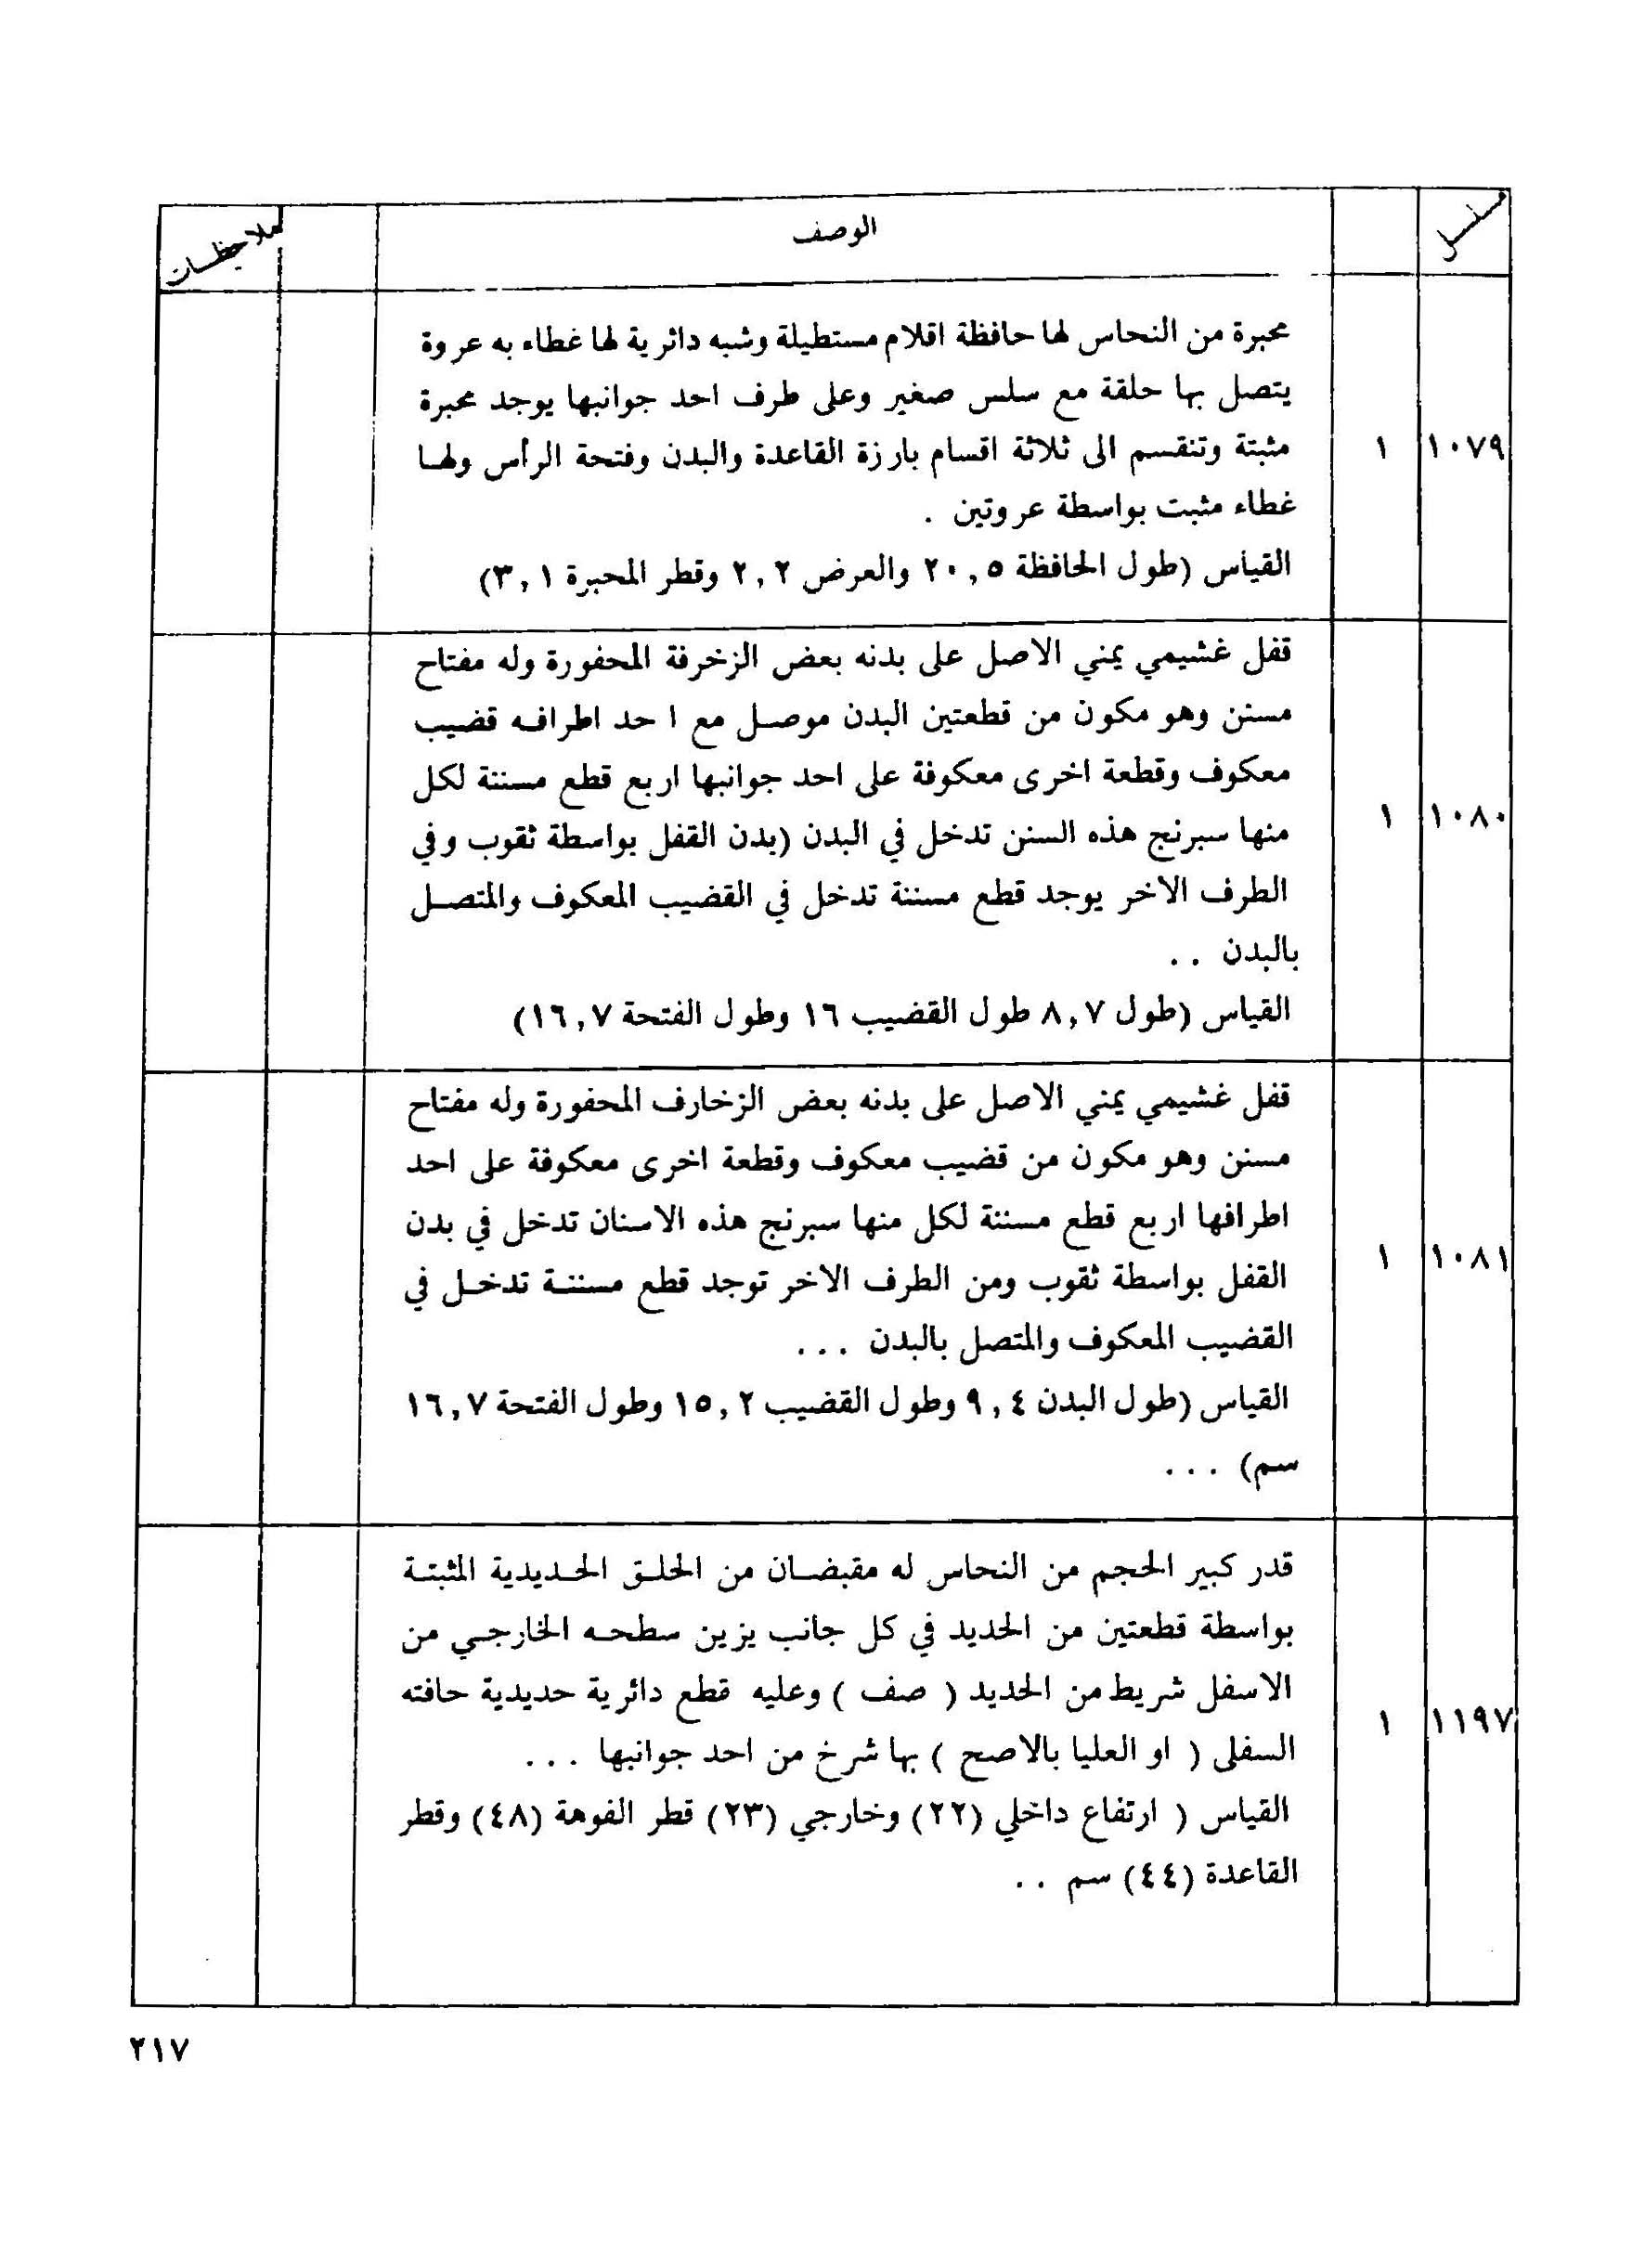 مسلسل
الوصف
ملاحظات
١٠٧٩
١
محبرة من النحاس لها حافظة اقلام مستطيلة وشبه دائرية لها غطاء به عروة
يتصل بها حلقة مع سلس صغير وعلى طرف احد جوانبها يوجد محبرة
مثبتة وتنقسم الى ثلاثة اقسام بارزة القاعدة والبدن وفتحة الرأس ولها
غطاء مثبت بواسطة عروتين .
القياس (طول الحافظة ٢٠,٥ والعرض ٢,٢ وقطر المحبرة ٣,١)
١٠٨٠
١
قفل غشيمي يمني الاصل على بدنه بعض الزخرفة المحفورة وله مفتاح
مسنن وهو مكون من قطعتين البدن موصل مع ا حد اطرافه قضيب
معكوف وقطعة اخرى معكوفة على احد جوانبها اربع قطع مسننة لكل
منها سبرنج هذه السنن تدخل في البدن (بدن القفل بواسطة ثقوب وفي
الطرف الاخر يوجد قطع مسننة تدخل في القضيب المعكوف والمتصل
بالبدن ..
القياس (طول ٨,٧ طول القضيب ١٦ وطول الفتحة ١٦,٧)
١٠٨١
١
قفل غشيمي يمني الاصل على بدنه بعض الزخارف المحفورة وله مفتاح
مسنن وهو مكون من قضيب معكوف وقطعة اخرى معكوفة على احد
اطرافها اربع قطع مسننة لكل منها سبرنج هذه الاسنان تدخل في بدن
القفل بواسطة ثقوب ومن الطرف الاخر توجد قطع مسننة تدخل في
القضيب المعكوف والمتصل بالبدن ...
القياس (طول البدن ٩,٤ وطول القضيب ١٥,٢ وطول الفتحة ١٦,٧
سم) ...
١١٩٧
١
قدر كبير الحجم من النحاس له مقبضان من الحلق الحديدية المثبتة
بواسطة قطعتين من الحديد في كل جانب يزين سطحه الخارجي من
الاسفل شريط من الحديد ( صف ) وعليه قطع دائرية حديدية حافته
السفلى ( او العليا بالاصح ) بها شرخ من احد جوانبها ...
القياس ( ارتفاع داخلي (٢٢) وخارجي (٢٣) قطر الفوهة (٤٨) وقطر
القاعدة (٤٤) سم ..
٢١٧